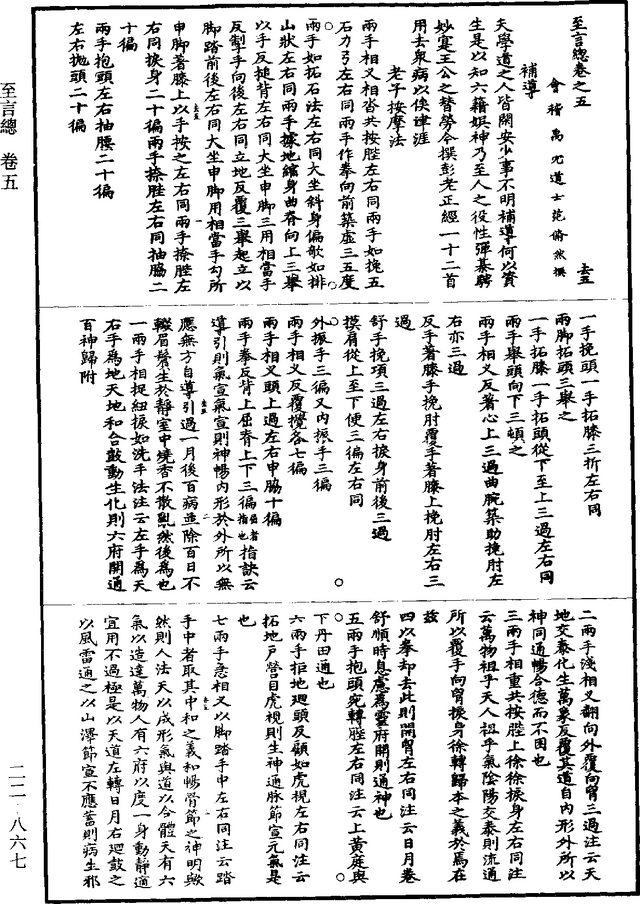 至言總卷之五
去五
會稽禹穴道士范翛然撰
補導
夫學道之人皆閑安少事不明補導何以資
生是以知六藉娛神乃至人之役性彈棊騁
妙寔王公之替勞今撰彭老正經一十二首
用去衆病以俟津涯
老子按摩法
兩手相叉相沓共按䏶左右同兩手如挽五
石力弓左右同兩手作拳向前築虛三五度
兩手如拓石法左右同大坐斜身偏欹如排
山狀左右同兩手據地縮身曲脊向上三舉
以手反搥背左右同大坐申脚三用相當手
反掣手向後左右同立地反覆三舉起立以
脚踏前後左右同大坐申脚用相當手勾所
申脚著膝上以手按之左右同兩手捺䏶左
右同捩身二十徧兩手捺䏶左右同抽脇二
十徧
兩手抱頸左右抽腰二十徧
左右拋頭二十徧
一手挽頭一手拓膝三折左右同
兩脚拓頭三舉之
一手拓膝一手拓頭從下至上三過左右同
兩手舉頭向下三頓之
兩手相叉反著心上三過曲腕築肋挽肘左
右亦三過
反手著膝手挽肘覆手著膝上挽肘左右三
過
舒手挽項三過左右捩身前後三過
摸肩從上至下使三徧左右同
外振手三徧又內振手三徧
兩手相叉反覆攪各七徧
兩手相叉頭上過左右申脇十徧
兩手拳反背上屈脊上下三徧指訣云
導引則氣宣氣宣則神暢內形於外所以無
應無方自導引過一月後百病造除百日不
輟眉鬢生於靜室中燒香不散亂然後爲也
一兩手相捉紐捩如洗手法注云左手爲天
右手爲地天地和合鼓動生化則六府開通
百神歸附
二兩手淺相叉翻向外覆向胷三過注云天
地交泰化生萬象反覆其道自內形外所以
神同通暢合德而不困也
三兩手相重共按䏶上徐徐捩身左右同注
云萬物祖乎天人祖乎氣陰陽交泰則流通
所以覆手向胷捩身徐轉歸本之義於焉在
兹
四以拳却去此則開胷左右同注云日月卷
舒順時息應爲靈府開則通神也
五兩手抱頭宛轉䏶左右同注云上黃庭與
下丹田通也
六兩手拒地廻頭及顧如虎視左右同注云
拓地戶營目虎視則生神通脉節宣元氣是
也
七兩手急相叉以脚踏手中左右同注云踏
手中者取其中和之義和暢骨節之神明歟
然則人法天以成形氣與道以合體天有六
氣以造達萬物人有六府以度一身動靜適
宜用不過極是以天道左轉日月右廻鼓之
以風雷通之以山澤節宣不應蓄則病生邪
至言總　卷五
二二·八六七